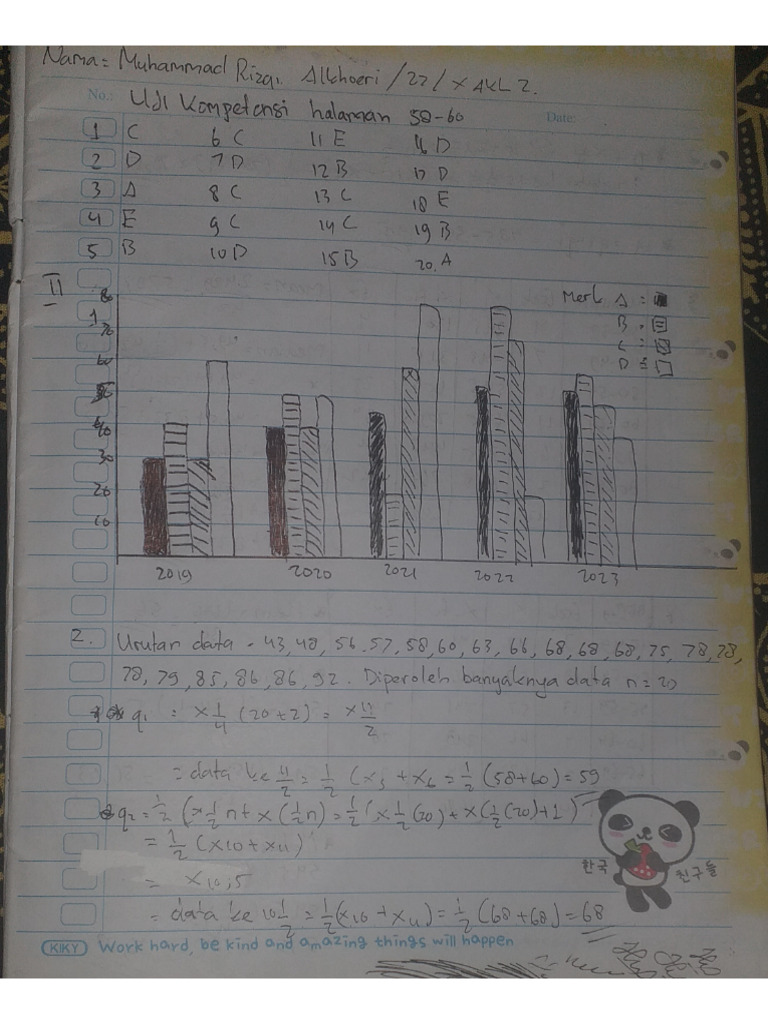 Nama = Muhammad Rizqi Alkhoeri / 27 / X AKL 2.
No.: Uji Kompetensi halaman 58-60 Date:
1 C 6 C 11 E 16 D
2 D 7 D 12 B 17 D
3 A 8 C 13 C 18 E
4 E 9 C 14 C 19 B
5 B 10 D 15 B 20. A
II
1
80
70
60
50
40
30
20
10
Merk A :
B :
C :
D :
2019 2020 2021 2022 2023
2. Urutan data = 43, 48, 56, 57, 58, 60, 63, 66, 68, 68, 68, 75, 78, 78,
78, 79, 85, 86, 86, 92. Diperoleh banyaknya data n = 20
q1 = x 1/4 (20+2) = x 11/2
= data ke 11/2 = 1/2 (x5 + x6 = 1/2 (58+60) = 59
q2 = 1/2 (x 1/2 n + x (1/2 n) = 1/2 (x 1/2 (20) + x (1/2 (20) + 1)
= 1/2 (x10 + x11)
= x10,5
= data ke 10 1/2 = 1/2 (x10 + x11) = 1/2 (68+68) = 68
한국 친구들
KIKY Work hard, be kind and amazing things will happen